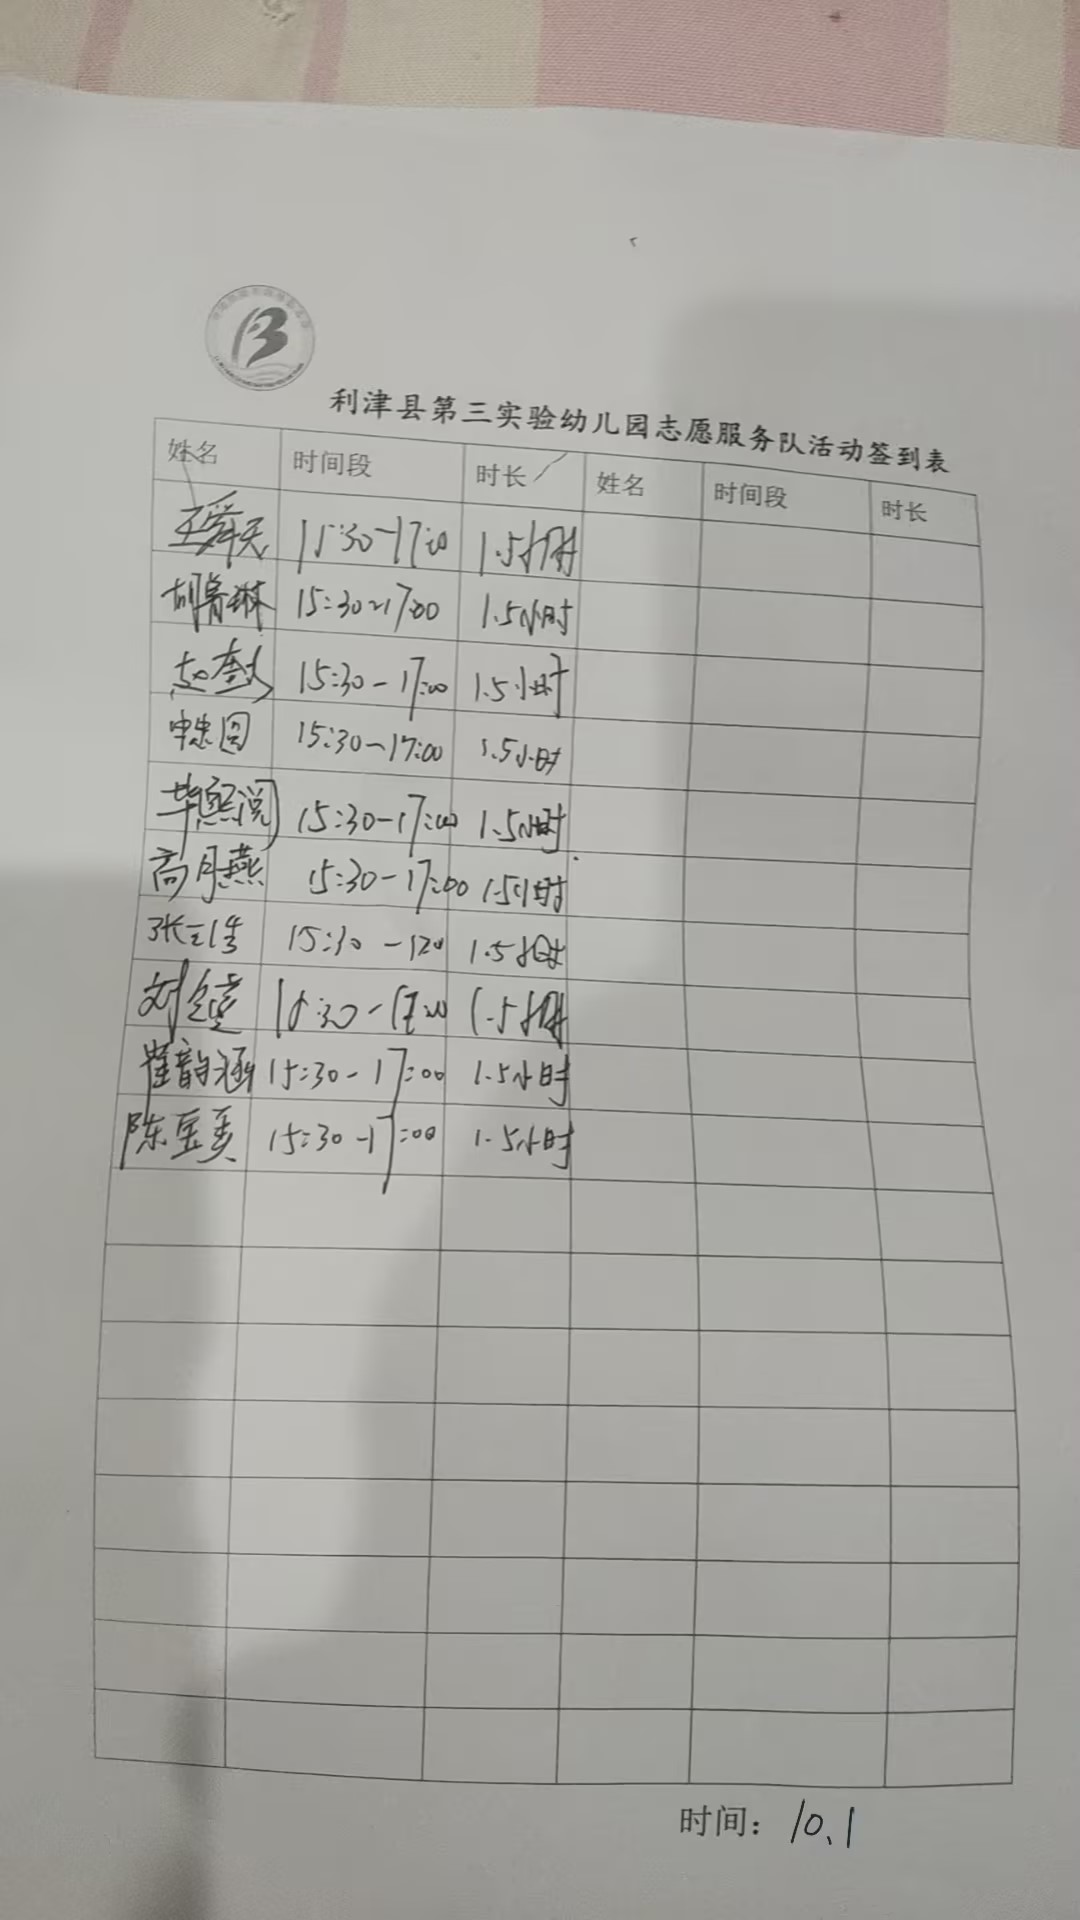 利津县第三实验幼儿园志愿服务队活动签到表
姓名 时间段 时长 姓名 时间段 时长
王舜天 15:30-17:00 1.5小时
胡鲁琳 15:30-17:00 1.5小时
15:30-17:00 1.5小时
申忠圆 15:30-17:00 1.5小时
毕熙阅 15:30-17:00 1.5小时
高月燕 15:30-17:00 1.5小时
15:30-1700 1.5小时
刘 15:30-17:00 1.5小时
崔韵涵 15:30-17:00 1.5小时
陈玉美 15:30-17:00 1.5小时
时间: 10.1